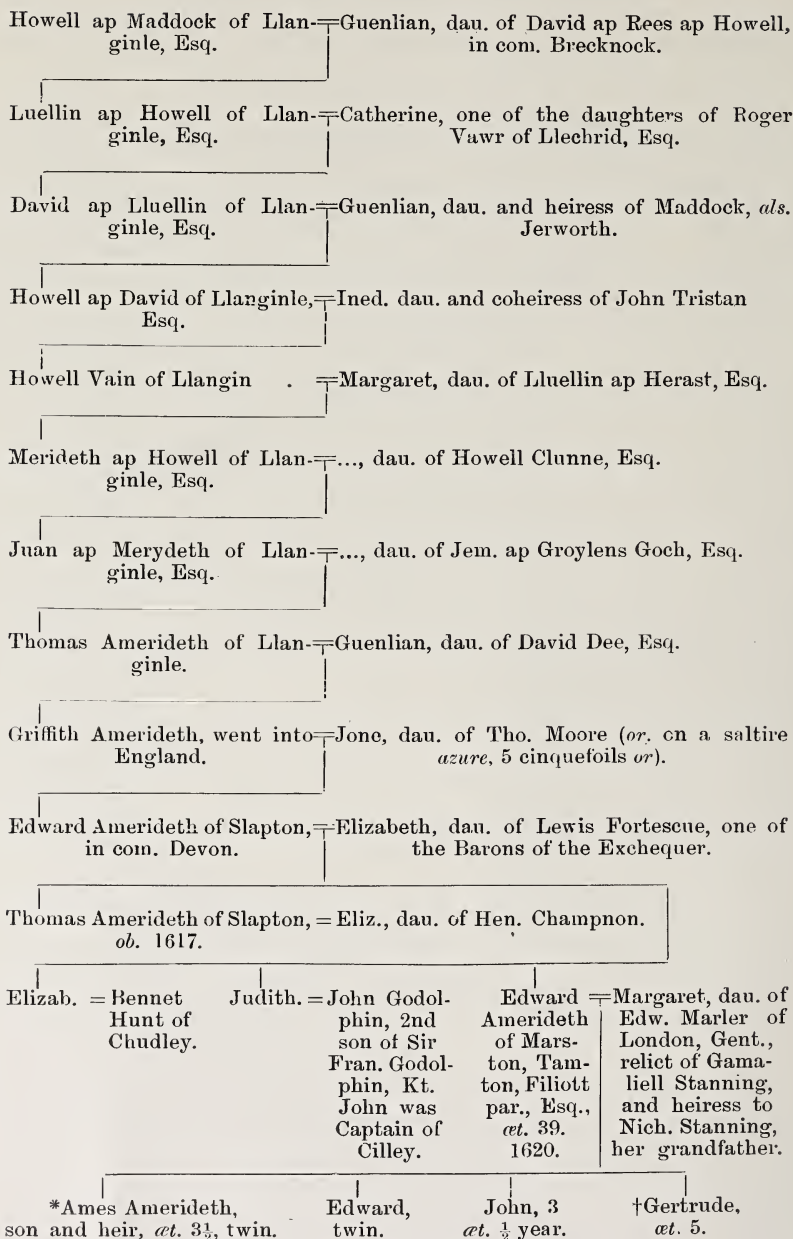 Howell ap Maddock of Llan-
ginle, Esq.
Guenlian, dau. of David ap Rees ap Howell,
in com. Brecknock.
Luellin ap Howell of Llan-
ginle, Esq.
Catherine, one of the daughters of Roger
Vawr of Llechrid, Esq.
David ap Lluellin of Llan-
ginle, Esq.
Guenlian, dau. and heiress of Maddock, als.
Jerworth.
Howell ap David of Llanginle,
Esq.
Ined. dau. and coheiress of John Tristan
Howell Vain of Llangin .
Margaret, dau. of Lluellin ap Herast, Esq.
Merideth ap Howell of Llan-
ginle, Esq.
..., dau. of Howell Clunne, Esq.
Juan ap Merydeth of Llan-
ginle, Esq.
..., dau. of Jem. ap Groylens Goch, Esq.
Thomas Amerideth of Llan-
ginle.
Guenlian, dau. of David Dee, Esq.
Griffith Amerideth, went into
England.
Jone, dau. of Tho. Moore (or. on a saltire
azure, 5 cinquefoils or).
Edward Amerideth of Slapton,
in com. Devon.
Elizabeth, dau. of Lewis Fortescue, one of
the Barons of the Exchequer.
Thomas Amerideth of Slapton,
ob. 1617.
= Eliz., dau. of Hen. Champnon.
Elizab. = Bennet
Hunt of
Chudley.
Judith. = John Godol-
phin, 2nd
son of Sir
Fran. Godol-
phin, Kt.
John was
Captain of
Cilley.
Edward
Amerideth
of Mars-
ton, Tam-
ton, Filiott
par., Esq.,
æt. 39.
1620.
Margaret, dau. of
Edw. Marler of
London, Gent.,
relict of Gama-
liell Stanning,
and heiress to
Nich. Stanning,
her grandfather.
*Ames Amerideth,
son and heir, æt. 3½, twin.
Edward,
twin.
John, 3
æt. ½ year.
†Gertrude,
æt. 5.